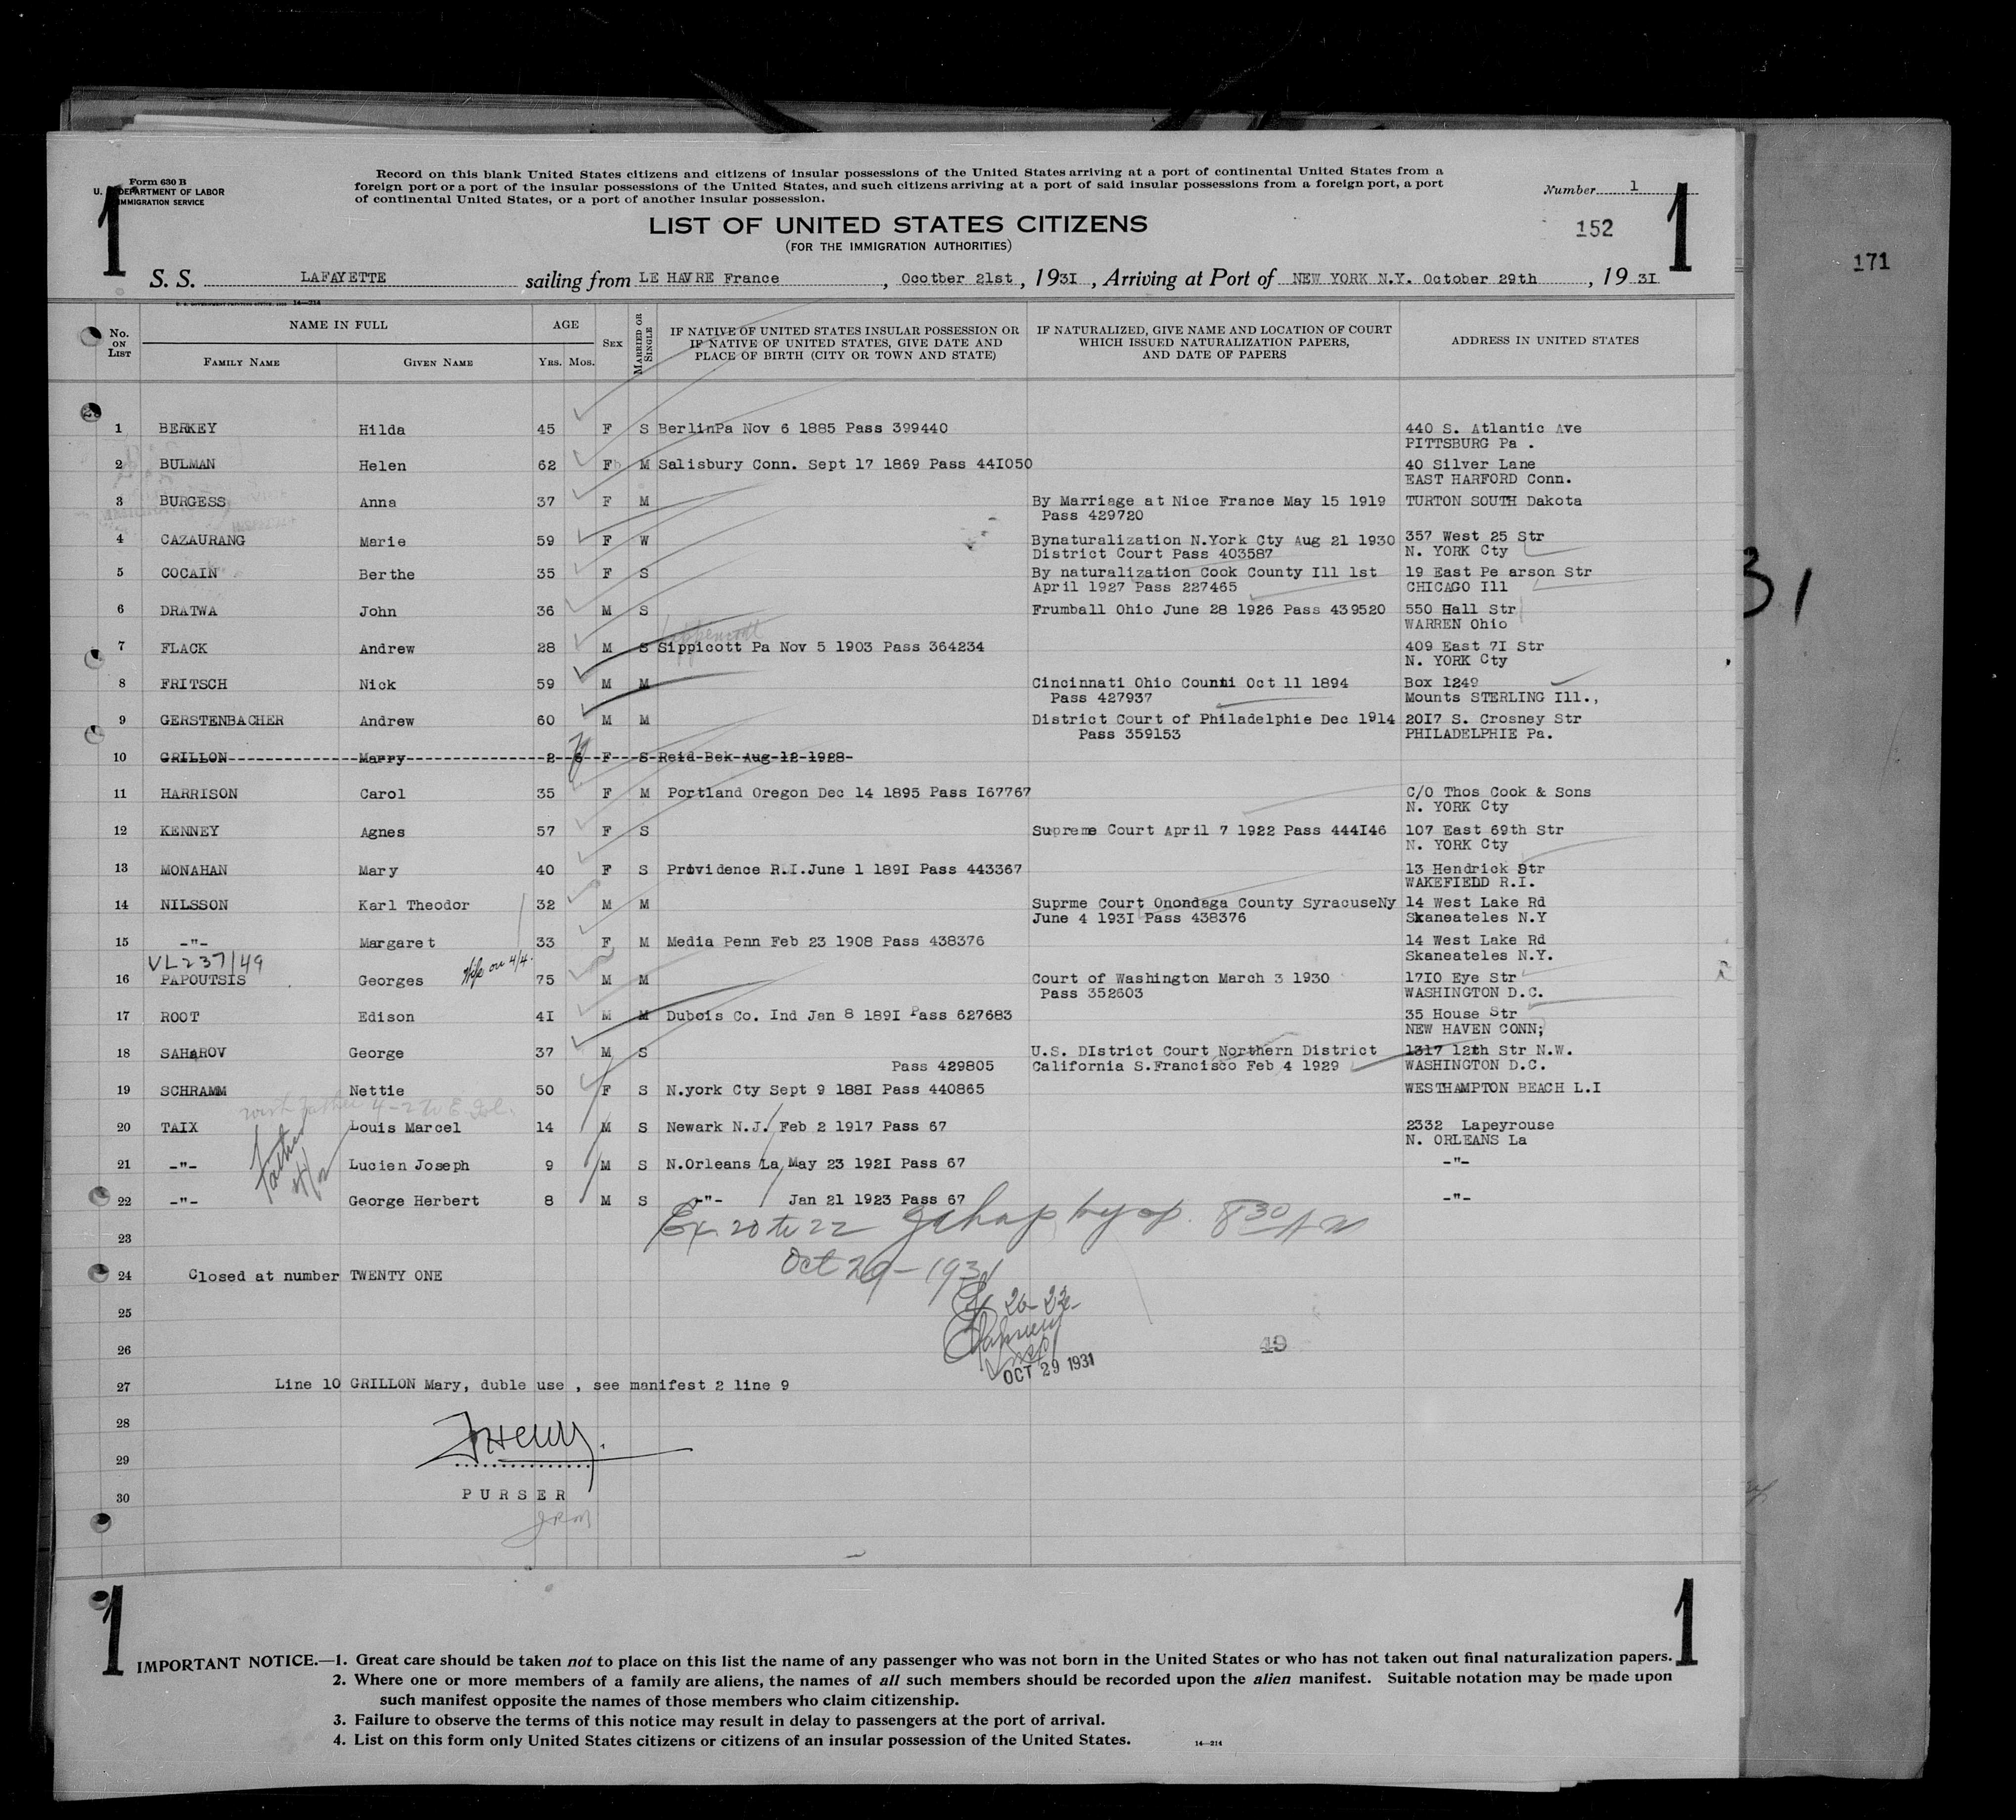 Form 630 B
U. S. DEPARTMENT OF LABOR
IMMIGRATION SERVICE
Record on this blank United States citizens and citizens of insular possessions of the United States arriving at a port of continental United States from a
foreign port or a port of the insular possessions of the United States, and such citizens arriving at a port of said insular possessions from a foreign port, a port
of continental United States, or a port of another insular possession.
Number 1
1
1
LIST OF UNITED STATES CITIZENS
152
(FOR THE IMMIGRATION AUTHORITIES)
171
S. S. LAFAYETTE sailing from LE HAVRE France , Ocotber 21st , 1931 , Arriving at Port of NEW YORK N.Y. October 29th , 19 31
14—214
No. ON LIST
NAME IN FULL
FAMILY NAME
GIVEN NAME
AGE
YRS. MOS.
SEX
MARRIED OR SINGLE
IF NATIVE OF UNITED STATES INSULAR POSSESSION OR
IF NATIVE OF UNITED STATES, GIVE DATE AND
PLACE OF BIRTH (CITY OR TOWN AND STATE)
IF NATURALIZED, GIVE NAME AND LOCATION OF COURT
WHICH ISSUED NATURALIZATION PAPERS,
AND DATE OF PAPERS
ADDRESS IN UNITED STATES
1 BERKEY Hilda 45 F S BerlinPa Nov 6 1885 Pass 399440 440 S. Atlantic Ave
PITTSBURG Pa .
2 BULMAN Helen 62 F M Salisbury Conn. Sept 17 1869 Pass 44I050 40 Silver Lane
EAST HARFORD Conn.
3 BURGESS Anna 37 F M By Marriage at Nice France May 15 1919 TURTON SOUTH Dakota
Pass 429720
4 CAZAURANG Marie 59 F W Bynaturalization N.York Cty Aug 21 1930 357 West 25 Str
District Court Pass 403587 N. YORK Cty
5 COCAIN Berthe 35 F S By naturalization Cook County Ill 1st 19 East Pe arson Str
April 1927 Pass 227465 CHICAGO Ill
6 DRATWA John 36 M S Frumball Ohio June 28 1926 Pass 439520 550 Hall Str
WARREN Ohio
7 FLACK Andrew 28 M S Sippicott Pa Nov 5 1903 Pass 364234 409 East 7I Str
N. YORK Cty
8 FRITSCH Nick 59 M M Cincinnati Ohio Counti Oct 11 1894 Box 1249
Pass 427937 Mounts STERLING Ill.,
9 GERSTENBACHER Andrew 60 M M District Court of Philadelphie Dec 1914 20I7 S. Crosney Str
Pass 359153 PHILADELPHIE Pa.
10 GRILLON Marry 2 6 F S Reid Bek Aug 12 1928
11 HARRISON Carol 35 F M Portland Oregon Dec 14 1895 Pass I67767 C/O Thos Cook & Sons
N. YORK Cty
12 KENNEY Agnes 57 F S Supreme Court April 7 1922 Pass 444I46 107 East 69th Str
N. YORK Cty
13 MONAHAN Mary 40 F S Providence R.I.June 1 189I Pass 443367 13 Hendrick Str
WAKEFIELD R.I.
14 NILSSON Karl Theodor 32 M M Suprme Court Onondaga County SyracuseNy 14 West Lake Rd
June 4 193I Pass 438376 Skaneateles N.Y
15 -"- Margaret 33 F M Media Penn Feb 23 1908 Pass 438376 14 West Lake Rd
Skaneateles N.Y.
VL237/49
Wife on 4/4.
16 PAPOUTSIS Georges 75 M M Court of Washington March 3 1930 17IO Eye Str
Pass 352603 WASHINGTON D.C.
17 ROOT Edison 4I M M Dubois Co. Ind Jan 8 189I Pass 627683 35 House Str
NEW HAVEN CONN;
18 SAHAROV George 37 M S U.S. DIstrict Court Northern District 1317 12th Str N.W.
Pass 429805 California S.Francisco Feb 4 1929 WASHINGTON D.C.
19 SCHRAMM Nettie 50 F S N.york Cty Sept 9 188I Pass 440865 WESTHAMPTON BEACH L.I
20 TAIX Louis Marcel 14 M S Newark N.J. Feb 2 1917 Pass 67 2332 Lapeyrouse
N. ORLEANS La
Father
21 -"- Lucien Joseph 9 M S N.Orleans La May 23 192I Pass 67 -"-
22 -"- George Herbert 8 M S -"- Jan 21 1923 Pass 67 -"-
23
24 Closed at number TWENTY ONE
Oct 29-1931
25
26
OCT 29 1931
27 Line 10 GRILLON Mary, duble use , see manifest 2 line 9
28
29
30
PURSER
1
1
IMPORTANT NOTICE.—1. Great care should be taken not to place on this list the name of any passenger who was not born in the United States or who has not taken out final naturalization papers.
2. Where one or more members of a family are aliens, the names of all such members should be recorded upon the alien manifest. Suitable notation may be made upon
such manifest opposite the names of those members who claim citizenship.
3. Failure to observe the terms of this notice may result in delay to passengers at the port of arrival.
4. List on this form only United States citizens or citizens of an insular possession of the United States.
14—214